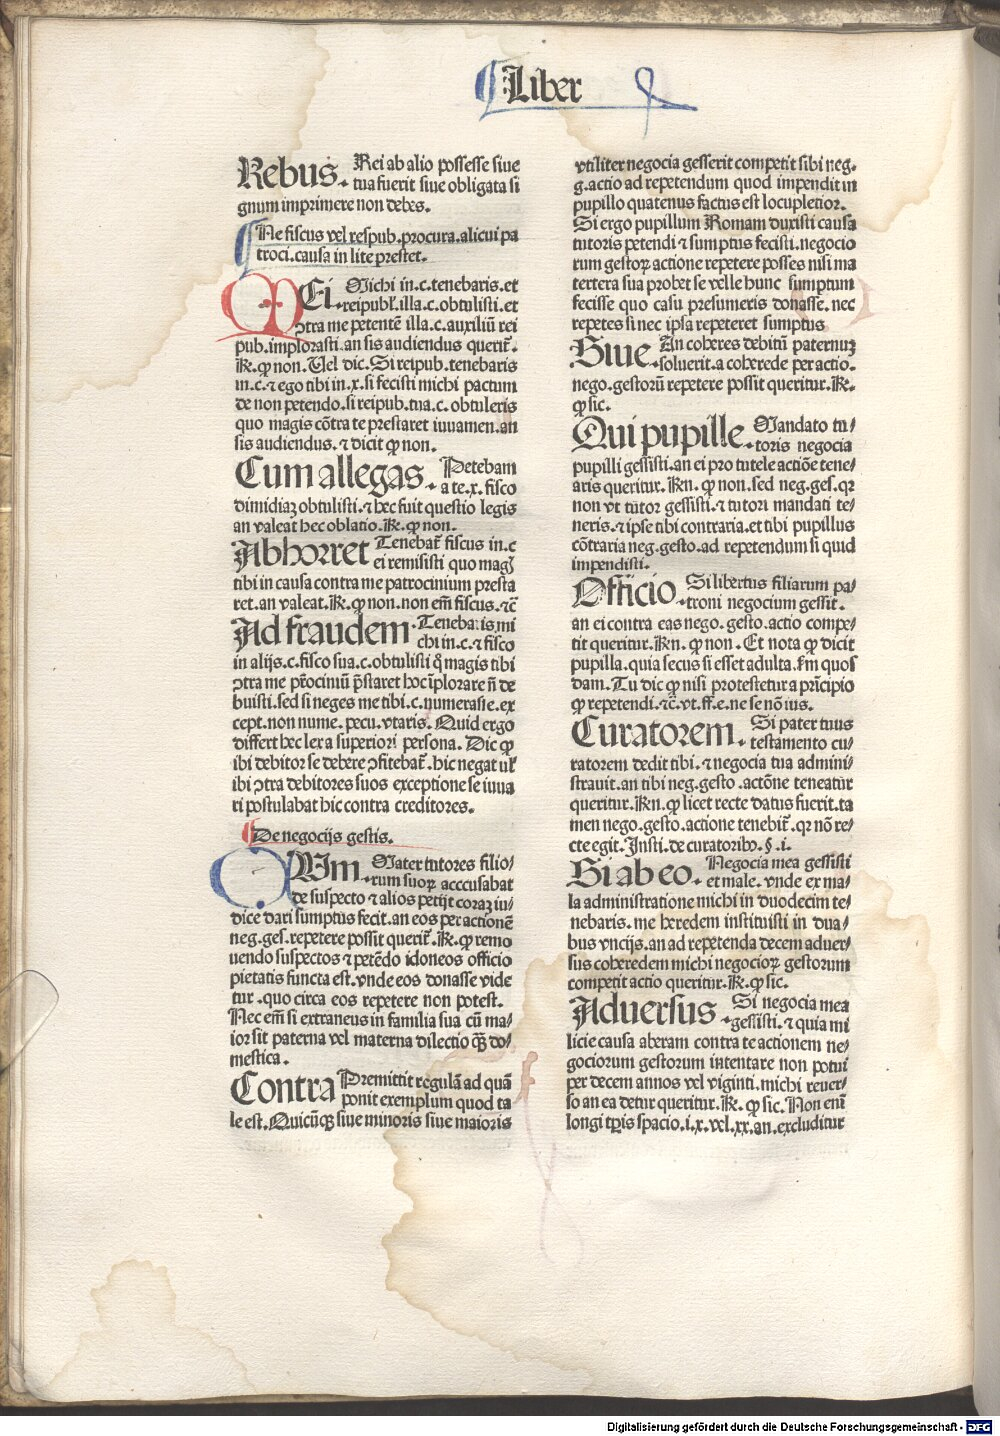 Liber
Rebus. Rei ab alio possesse siue
tua fuerit siue obligata si
gnum imprimere non debes.
Ne fiscus vel respub. procura. alicui pa
troci. causa in lite prestet.
Ei. Michi in .c. tenebaris. et
reipubl. illa .c. obtulisti. et
ꝯtra me petentē illa .c. auxiliū rei
pub. implorasti. an sis audiendus querit̄.
R̄. ꝙ non. Uel dic. Si reipub. tenebaris
in .c. ⁊ ego tibi in .x. si fecisti michi pactum
de non petendo. si reipub. tua .c. obtuleris
quo magis cōtra te prestaret iuuamen. an
sis audiendus. ⁊ dicit ꝙ non.
Cum allegas. Petebam
a te .x. fisco
dimidiaꝫ obtulisti. ⁊ hec fuit questio legis
an valeat hec oblatio. R̄. ꝙ non.
Abhorret Tenebat̄ fiscus in .c
ei remisisti quo magꝭ
tibi in causa contra me patrocinium presta
ret. an valeat. R̄. ꝙ non. non em̄ fiscus. ⁊c̄
Ad fraudem. Teneba: is mi
chi in .c. ⁊ fisco
in alijs .c. fisco sua .c. obtulisti q̊ magis tibi
ꝯtra me pr̄ociniū p̄staret hoc īplorare n̄ de
buisti. sed si neges me tibi .c. numerasse. ex
cept. non nume. pecu. vtaris. Quid ergo
differt hec lex a superiori persona. Dic ꝙ
ibi debitor se debere ꝯfitebat̄. hic negat vl̓
ibi ꝯtra debitores suos exceptione se iuua
ri postulabat hic contra creditores.
De negocijs gestis.
Um Mater tutores filio⸗
rum suoꝝ acccusabat
de suspecto ⁊ alios petijt coraꝫ iu⸗
dice dari sumptus fecit. an eos per actionē
neg. ges. repetere possit querit̄. R̄. ꝙ remo
uendo suspectos ⁊ petēdo idoneos officio
pietatis functa est. vnde eos donasse vide
tur. quo circa eos repetere non potest.
Nec em̄ si extraneus in familia sua cū ma⸗
ior sit paterna vel materna dilectio q̄ꝫ do⸗
mestica.
Contra Premittit regulā ad quā
ponit exemplum quod ta
le est. Quicūqꝫ siue minoris siue maioris
vtiliter negocia gesserit competit sibi neg.
g. actio ad repetendum quod impendit in
pupillo quatenus factus est locupletior.
Si ergo pupillum Romam duxisti causa
tutoris petendi ⁊ sumptus fecisti. negocio
rum gestoꝝ actione repetere posses nisi ma
tertera sua probet se velle hunc sumptum
fecisse quo casu presumeris donasse. nec
repetes si nec ipsa repeteret sumptus
Siue An coheres debitū paternuꝫ
soluerit. a coherede per actio.
nego. gestorū repetere possit queritur. R̄.
ꝙ sic.
Qui pupille. Mandato tu⸗
toris negocia
pupilli gessisti. an ei pro tutele actiōe tene⸗
aris queritur. R̄n. ꝙ non. sed neg. ges. qꝛ
non vt tutor gessisti. ⁊ tutori mandati te⸗
neris. ⁊ ipse tibi contraria. et tibi pupillus
cōtraria neg. gesto. ad repetendum si quid
impendisti.
Officio. Si libertus filiarum pa⸗
troni negocium gessit.
an ei contra eas nego. gesto. actio compe⸗
tit queritur. R̄n. ꝙ non. Et nota ꝙ dicit
pupilla. quia secus si esset adulta. ẜm quos
dam. Tu dic ꝙ nisi protestetur a prīcipio
ꝙ repetendi. ⁊c̄. vt. ff. e. ne se nō ius.
Curatorem. Si pater tuus
testamento cu⸗
ratorem dedit tibi. ⁊ negocia tua admini⸗
strauit. an tibi neg. gesto. actōne teneatur
queritur. R̄n. ꝙ licet recte datus fuerit. ta
men nego. gesto. actione tenebit̄. qꝛ nō re⸗
cte egit. Insti. de curatoribꝰ. §. i.
Si ab eo. Negocia mea gessisti
et male. vnde ex ma⸗
la administratione michi in duodecim te⸗
nebaris. me heredem instituisti in dua⸗
bus vncijs. an ad repetenda decem aduer⸗
sus coheredem michi negocioꝝ gestorum
competit actio queritur. R̄. ꝙ sic.
Aduersus Si negocia mea
gessisti. ⁊ quia mi
licie causa aberam contra te actionem ne⸗
gociorum gestorum intentare non potui
per decem annos vel viginti. michi reuer⸗
so an ea detur queritur. R̄. ꝙ sic. Non enī
longi tꝑis spacio .i. x. vel. xx. an. excluditur
Digitalisierung gefördert durch die Deutsche Forschungsgemeinschaft - DFG